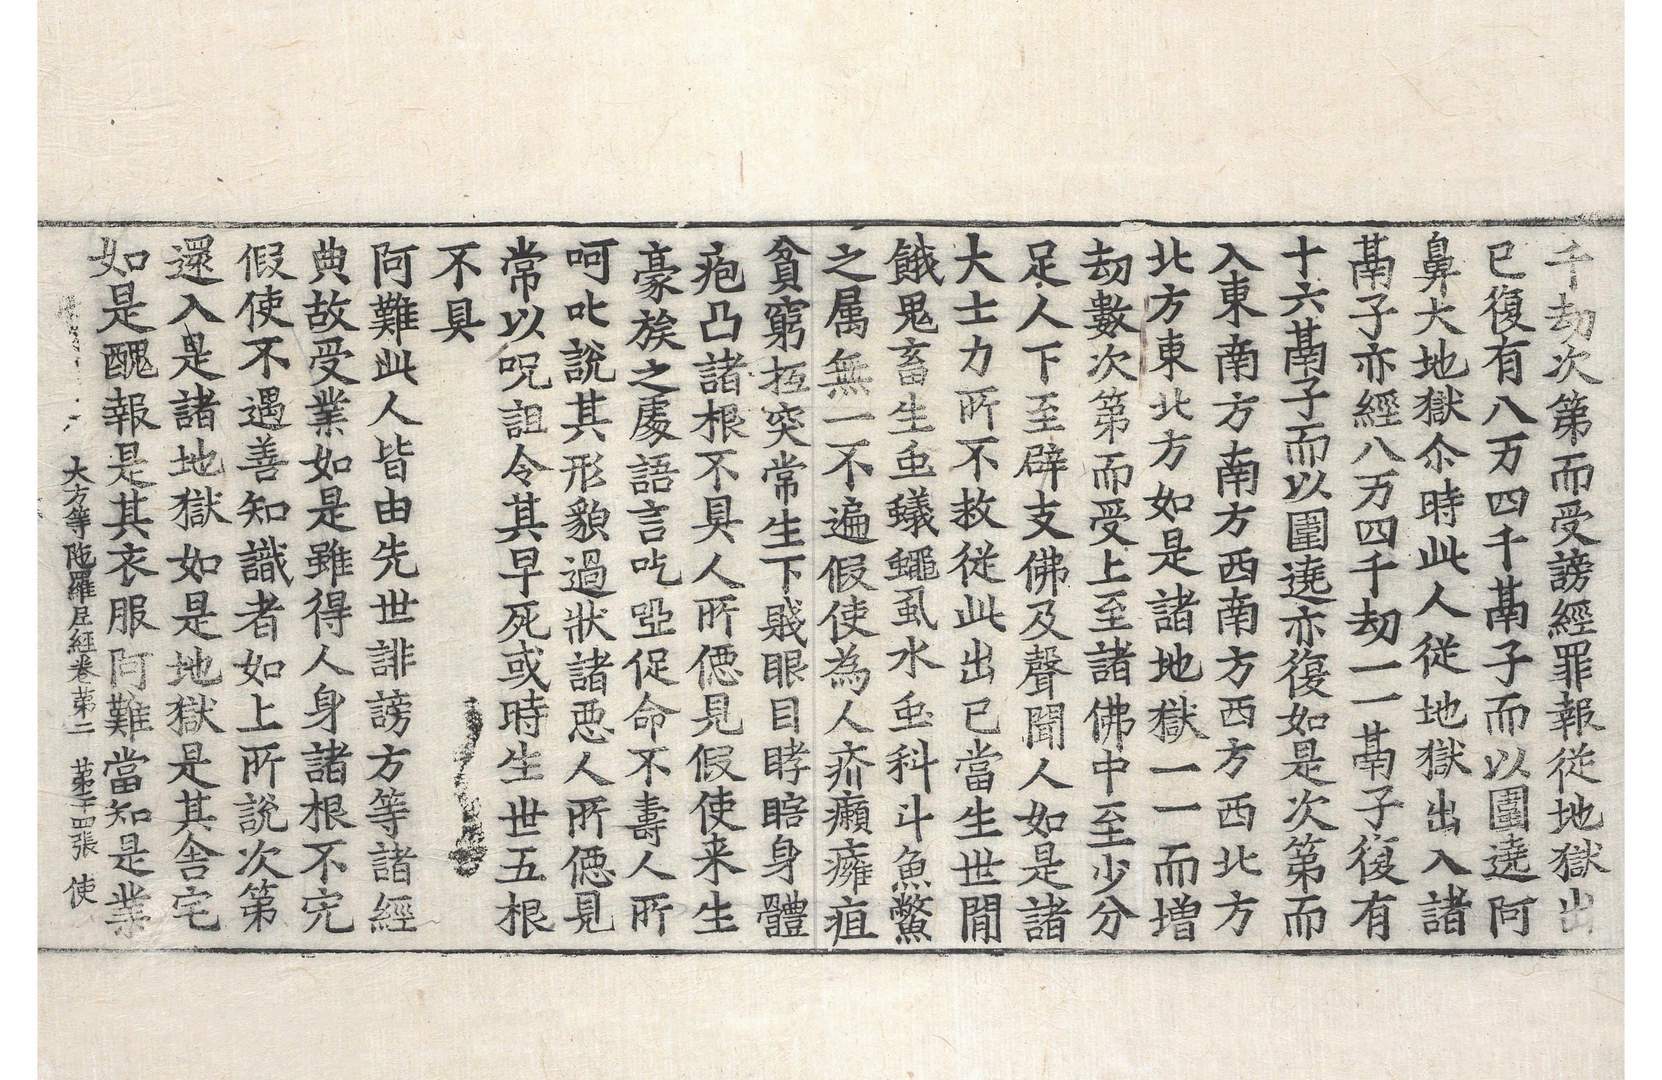 千劫次第而受謗經罪報從地獄出
已復有八万四千鬲子而以圍遶阿
鼻大地獄尒時此人從地獄出入諸
鬲子亦經八万四千劫一一鬲子復有
十六鬲子而以圍遶亦復如是次第而
入東南方南方西南方西方西北方
北方東北方如是諸地獄一一而增
劫數次第而受上至諸佛中至少分
足人下至辟支佛及聲聞人如是諸
大士力所不救從此出已當生世閒
餓鬼畜生虫蟻蠅虱水虫科斗魚鱉
之属無一不遍假使為人疥癩癰疽
貧窮抂突常生下賤眼目眵瞎身體
疱凸諸根不具人所僫見假使来生
豪族之處語言吃瘂促命不壽人所
呵叱說其形貌過狀諸惡人所僫見
常以呪詛令其早死或時生世五根
不具
阿難此人皆由先世誹謗方等諸經
典故受業如是雖得人身諸根不完
假使不遇善知識者如上所說次第
還入是諸地獄如是地獄是其舍宅
如是醜報是其衣服阿難當知是業
大方等陁羅尼經卷第二 第十四張 使